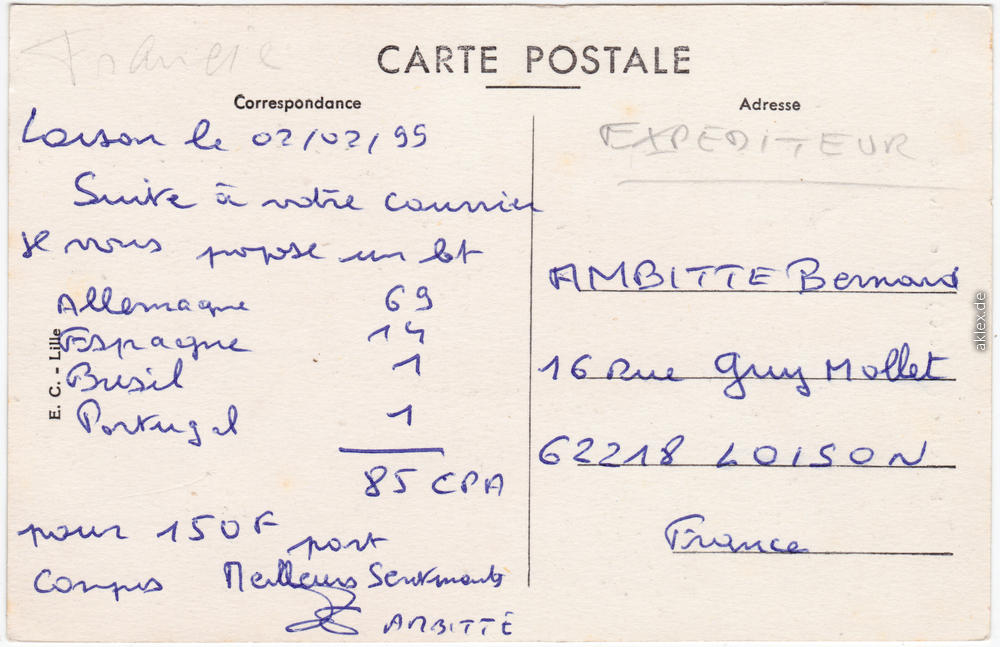 CARTE POSTALE
Correspondance
Loison le 02/02/99
Suite à votre courrier
je vous propose un lot
Allemagne 69
Espagne 14
Bresil 1
Portugal 1
85 CPA
pour 150F port
compris Meilleurs Sentiments
AMBITTE
E. C. - Lille
Adresse
EXPEDITEUR
AMBITTE Bernard
16 Rue Guy Mollet
62218 LOISON
France
aklex.de